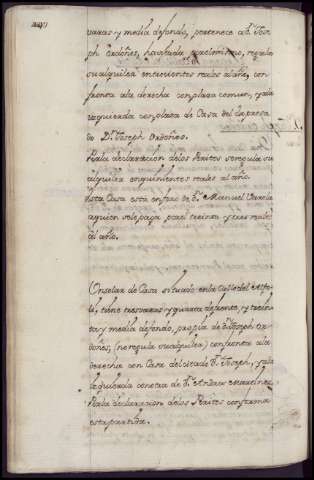 varas y media de fondo, pertenece a Dn. Jose
ph Ordoñes, havitada
su alquiler en trecientos reales al año, con
fronta ala derecha con plaza comun, y ala
izquierda con plaza de Casa del
de Dn. Joseph Ordoñes.
Por la declaracion delos Peritos se regula su
alquiler en quinientos reales al año
Esta Casa esta enforo de Dn. Manuel Varela
aquien sele paga por el treinta y tres reales
al año.
Un solar de Casa situado enla Calle del
tiene tres varas y quarta de frente, y trein
ta y media de fondo, propia de Dn. Joseph Or
doñes, (no regula su alquiler) confronta ala
derecha con Casa del citado Dn. Joseph, y ala
izquierda con otra de Dn. Andres Martinez
Por la declaracion delos Peritos conforma
esta partida.